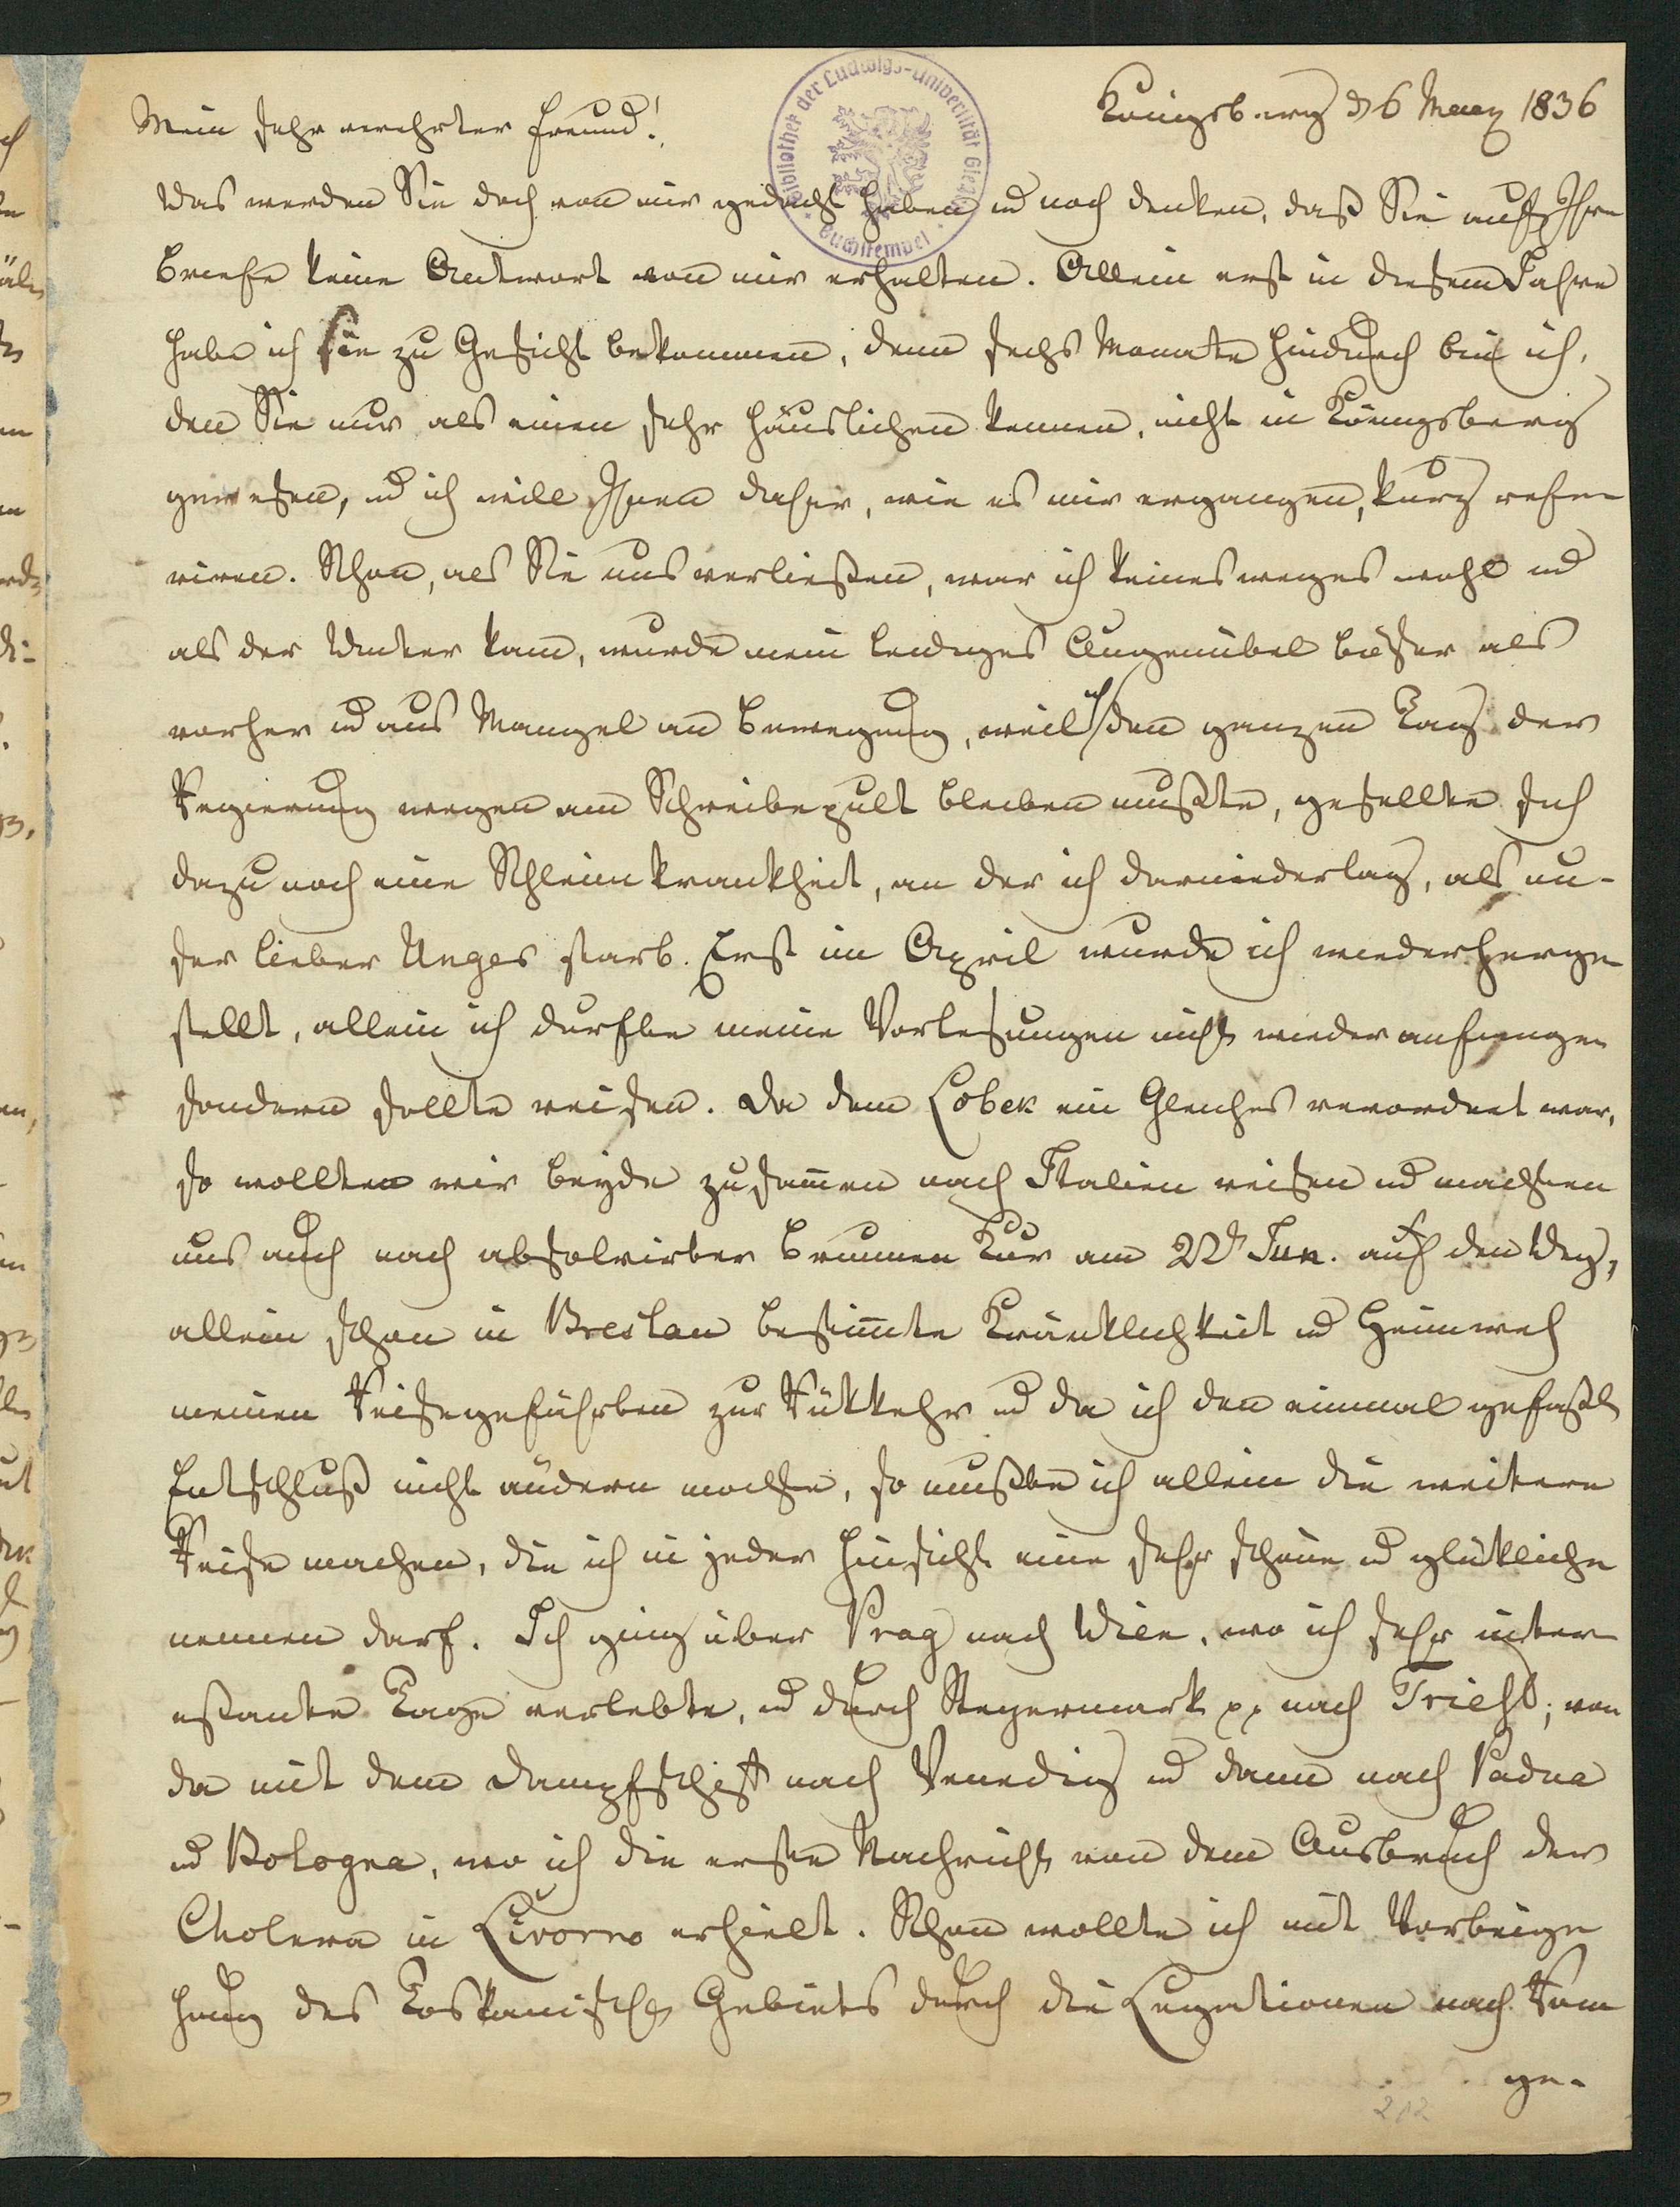 Königsberg d 6 Merz 1836
Mein sehr verehrter Freund!
Was werden Sie doch von mir gedacht haben und noch denken, daß Sie auf Ihre
Briefe keine Antwort von mir erhalten. Allein erst in diesem Jahre
habe ich sie zu Gesicht bekommen, denn sechs Monate hindurch bin ich,
den Sie nur als einen sehr häuslichen kennen, nicht in Königsberg
gewesen, und ich will Ihnen daher, wie es mir ergangen, kurz refe
riren. Schon, als Sie uns verließen, war ich keinesweges wohl und
als der Winter kam, wurde mein leidiges Augenübel böser als
vorher und aus Mangel an Bewegung, weil ich den ganzen Tag der
Regierung wegen am Schreibepult bleiben mußte, gesellte sich
dazu noch eine Schleimkrankheit, an der ich darniederlag, als un-
ser lieber Unger starb. Erst im April wurde ich wiederherge
stellt, allein ich durfte meine Vorlesungen nicht wieder anfangen
sondern sollte reisen. Da dem Lobek ein Gleiches verordnet war,
so wollten wir beyde zusammen nach Italien reisen und machten
uns auch nach absolvirter Brunnen Kur am 22t Jun. auf den Weg,
allein schon in Breslau bestimmte Kränklichkeit und Heimweh
meinen Reisegefährten zur Rükkehr und da ich den einmal gefaßten
Entschluß nicht ändern mochte, so mußte ich allein die weitere
Reise machen, die ich in jeder Hinsicht eine sehr schöne und glükliche
nennen darf. Ich ging über Prag nach Wien, wo ich sehr inter
eßante Tage verlebte, und durch Steyermark pp nach Triest; von
da mit dem Dampfschiff nach Venedig und dann nach Padua
und Bologna, wo ich die erste Nachricht von dem Ausbruch der
Cholera in Livorno erhielt. Schon wollte ich mit Vorbeige
hung des Toskanischen Gebiets durch die Legationen nach Rom
ge-
202
Bibliothek der Ludwigs-Universität Gießen
Buchstempel